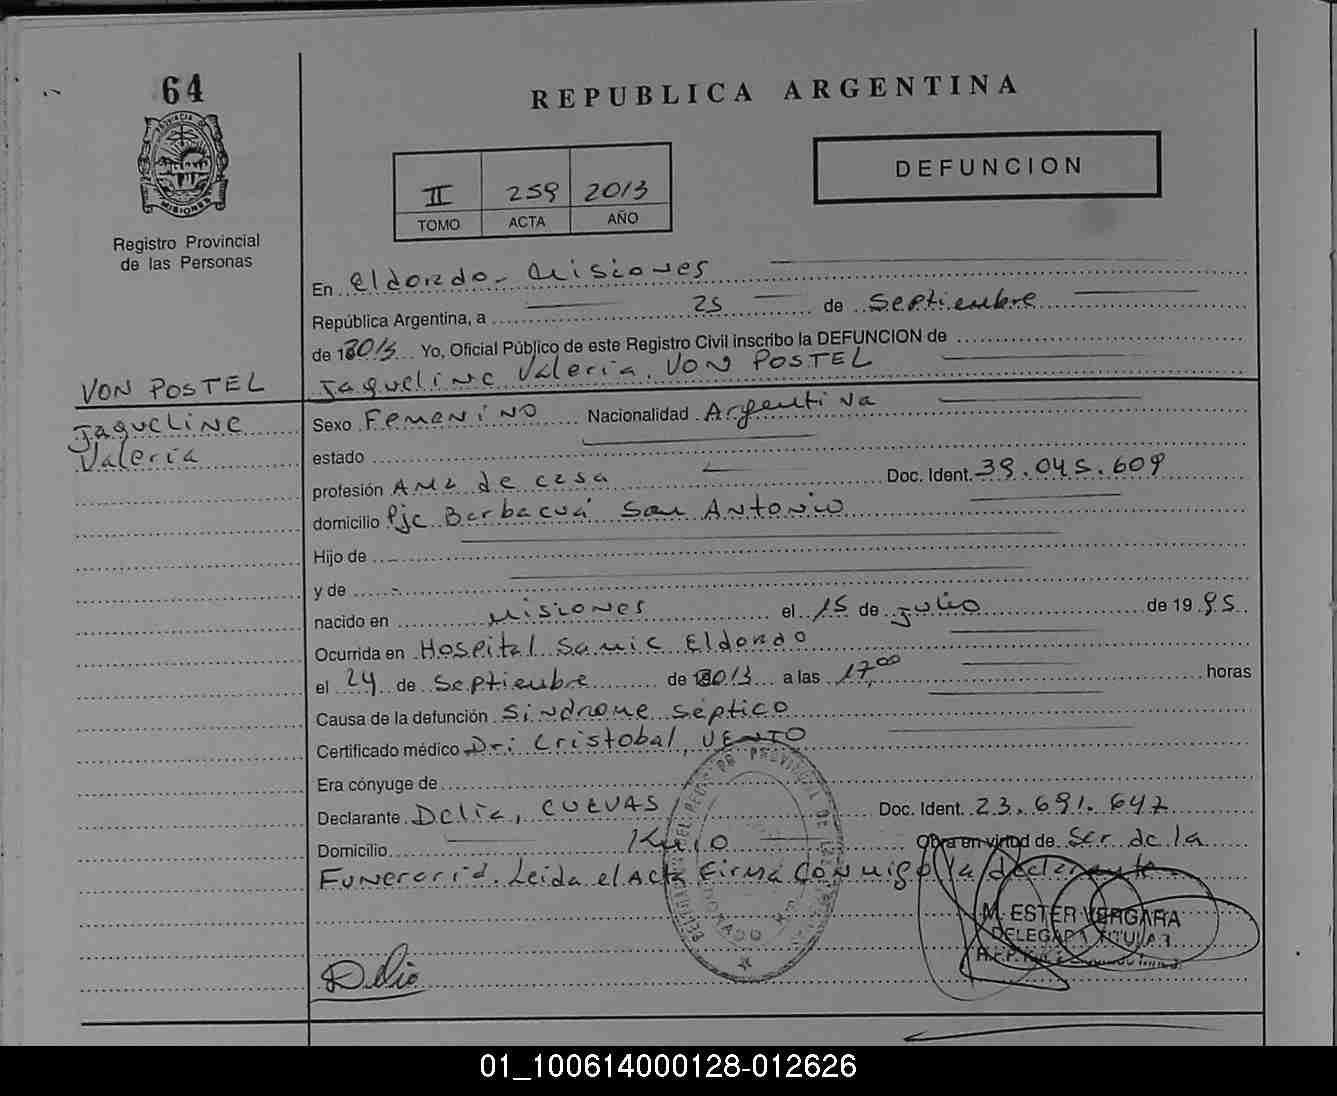 64
REPUBLICA ARGENTINA
PROVINCIA DE MISIONES
Registro Provincial
de las Personas
II 259 2013
TOMO ACTA AÑO
DEFUNCION
En Eldorado - Misiones
República Argentina, a 25 de Septiembre
de 2013 Yo, Oficial Público de este Registro Civil inscribo la DEFUNCION de
Jaqueline Valeria, VON POSTEL
VON POSTEL
Jaqueline
Valeria
Sexo Femenino Nacionalidad Argentina
estado
profesión Ama de casa Doc. Ident. 39.045.609
domicilio Pje Barbacuá San Antonio
Hijo de
y de
nacido en Misiones el 15 de Julio de 1995
Ocurrida en Hospital Samic Eldorado
el 24 de Septiembre de 2013 a las 17,00 horas
Causa de la defunción Sindrome Séptico
Certificado médico Dr: Cristobal, VENTO
Era cónyuge de
Declarante Delia, CUEVAS Doc. Ident. 23.691.647
Domicilio Km 10 Obra en virtud de Ser de la
Funeraria. Leida el Acta Firma conmigo la declarante
M. ESTER VERGARA
DELEGADA TITULAR
Delia
01_100614000128-012626